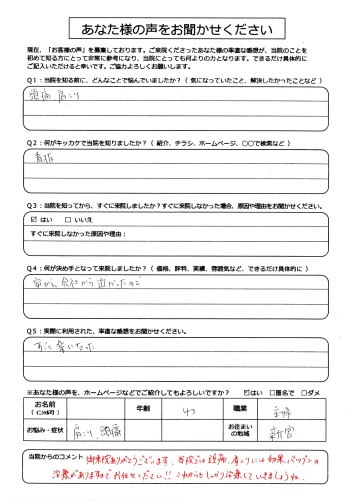 あなた様の声をお聞かせください
現在、「お客様の声」を募集しております。ご来院くださったあなた様の率直な感想が、当院のことを
初めて知る方にとって非常に参考になり、当院にとっても何よりの力となります。できるだけ具体的に
ご記入いただけると幸いです。ご協力よろしくお願いします。
Q1：当院を知る前に、どんなことで悩んでいましたか？（ 気になっていたこと、解決したかったことなど ）
頭痛 肩こり
Q2：何がキッカケで当院を知りましたか？（ 紹介、チラシ、ホームページ、○○で検索など ）
看板
Q3：当院を知ってから、すぐに来院しましたか？すぐに来院しなかった場合、原因や理由をお聞かせください。
☑ はい　□ いいえ
すぐに来院しなかった原因や理由：
Q4：何が決め手となって来院しましたか？（ 価格、評判、実績、雰囲気など、できるだけ具体的に ）
家から 会社から 近かったので
Q5：実際に利用された、率直な感想をお聞かせください。
すごく 楽になった
※あなた様の声を、ホームページなどでご紹介してもよろしいですか？　☑はい　□匿名で　□ダメ
お名前
（イニシャル可）
年齢
43
職業
主婦
お悩み・症状
肩こり、頭痛
お住まい
の地域
新宮
当院からのコメント
御来院ありがとうございます。当院では頭痛、肩こりには効果バツグンの
治療がありますので お任せください!! これからもしっかり治療していきましょうね。